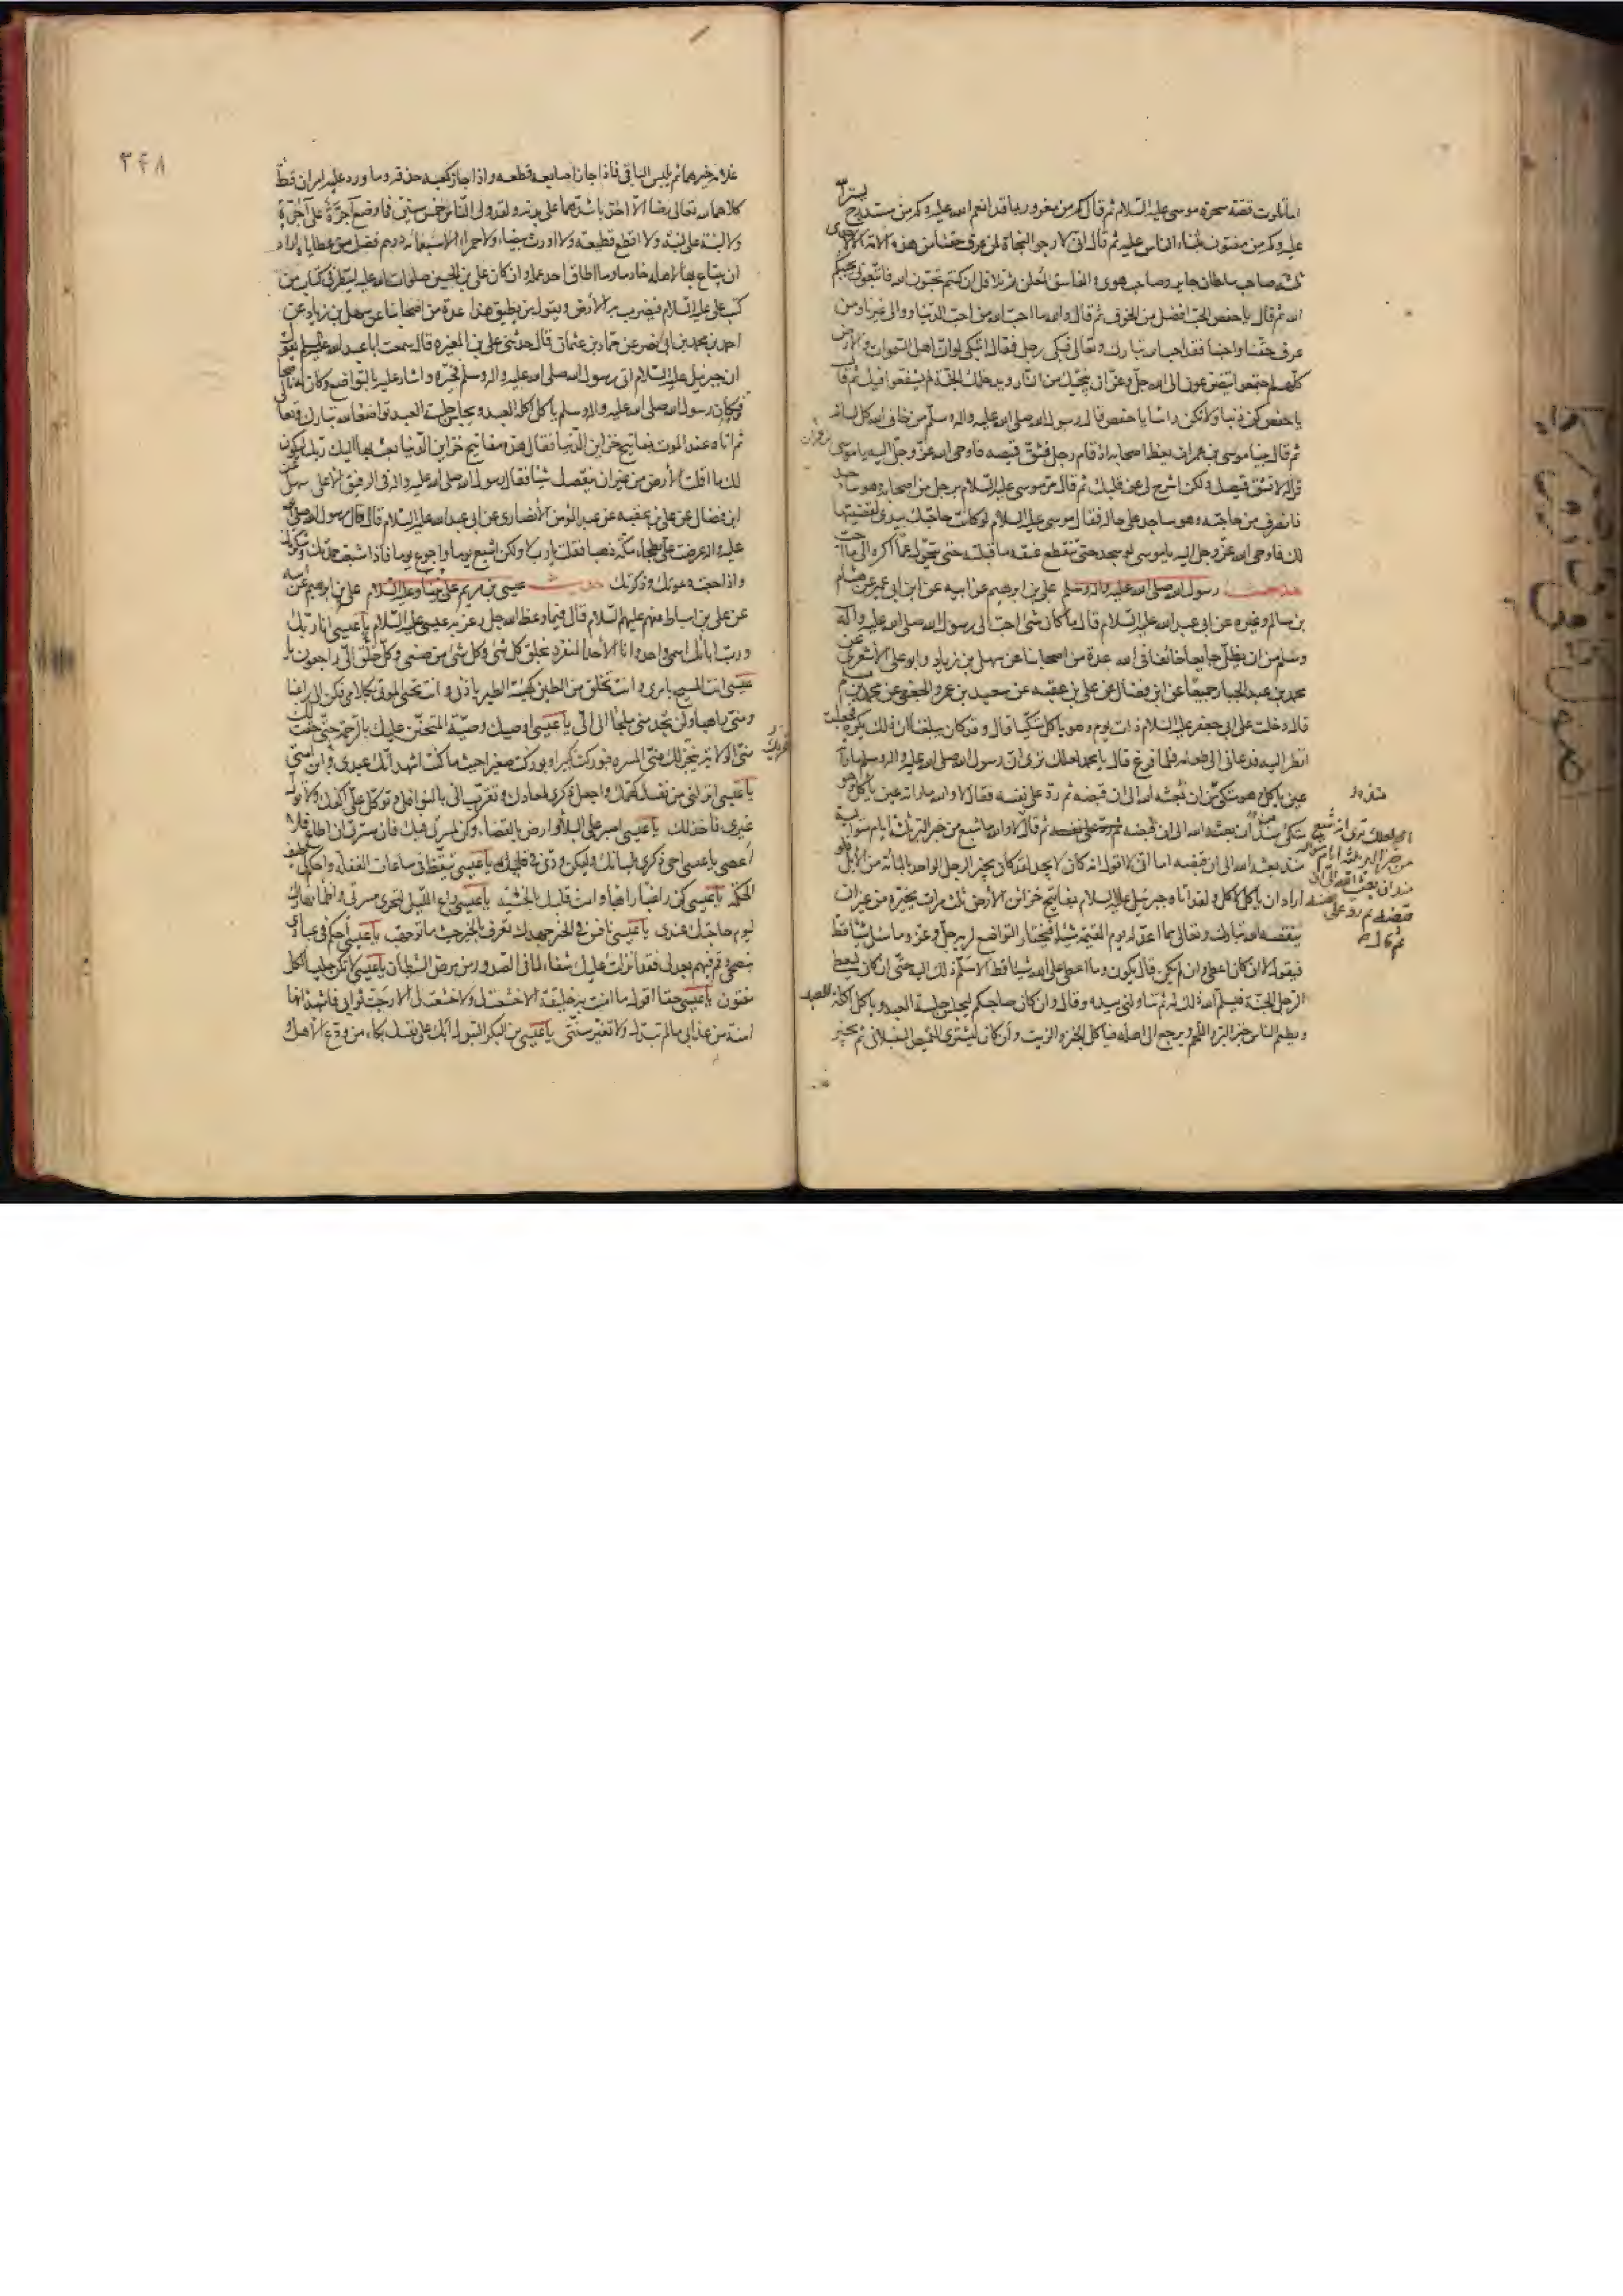 اما تلوت قصة سحرة موسى عليه السلام ثم قال كم من مغرور بما قد انعم الله عليه وكم من مستدرج بستر الله
عليه وكم من مفتون بثناء الناس عليه ثم قال انى لارجو النجاة لمن عرف حقنا من هذه الامة الا لاحدى
ثلثة صاحب سلطان جاير وصاحب هوى والفاسق المعلن ثم تلا قل ان كنتم تحبون الله فاتبعونى يحببكم
الله ثم قال يا حفص الحب افضل من الخوف ثم قال والله ما احب الله من احب الدنيا ووالى غيرنا ومن
عرف حقنا واحبنا فقد احب الله تبارك وتعالى فبكى رجل فقال اتبكى لو ان اهل السموات والارض
كلهم اجتمعوا يتضرعون الى الله جل وعز ان ينجيك من النار ويدخلك الجنة لم يشفعوا فيك ثم قال
يا حفص كن ذنبا ولا تكن راسا يا حفص قال رسول الله صلى الله عليه واله وسلم من خاف الله كل لسانه
ثم قال بينا موسى بن عمران يعظ اصحابه اذ قام رجل فشق قميصه فاوحى الله عز وجل اليه يا موسى
قل له لا تشق قميصك ولكن اشرح لى عن قلبك ثم قال مر موسى عليه السلام برجل من اصحابه وهو ساجد
فانصرف من حاجته وهو ساجد على حاله فقال موسى عليه السلام لو كانت حاجتك بيدى لقضيتها
لك فاوحى الله عز وجل اليه يا موسى لو سجد حتى ينقطع عنقه ما قبلته حتى يتحول عما اكره الى ما احب
حديث رسول الله صلى الله عليه واله وسلم على بن ابرهيم عن ابيه عن ابن ابى عمير عن هشام
بن سالم وغيره عن ابى عبد الله عليه السلام قال ما كان شئ احب الى رسول الله صلى الله عليه واله
وسلم من ان يظل جايعا خائفا فى الله عدة من اصحابنا عن سهل بن زياد وابو على الاشعرى عن
محمد بن عبد الجبار جميعا عن ابن فضال عن على بن عقبه عن سعيد بن عمرو الجعفى عن محمد بن مسلم
قال دخلت على ابى جعفر عليه السلام ذات يوم وهو ياكل متكيا قال وقد كان يبلغنا ان ذلك يكره فجعلت
انظر اليه فدعانى الى طعامه فلما فرغ قال يا محمد لعلك ترى ان رسول الله صلى الله عليه واله وسلم ما راته
عين ياكل وهو متكئ من ان بعثه الله الى ان قبضه ثم رد على نفسه فقال لا والله ما راته عين ياكل وهو
متكئ منذ ان بعثه الله الى ان قبضه ثم قال لا والله ما شبع من خبز البر ثلثة ايام متوالية
منذ بعثه الله الى ان قبضه اما انى لا اقول انه كان لا يجد لقد كان يجيز الرجل الواحد بالمائة من الابل فلو
اراد ان ياكل لاكل ولقد اتاه جبرئيل عليه السلام بمفاتيح خزائن الارض ثلث مرات يخيره من غير ان
ينقصه الله تبارك وتعالى مما اعد له يوم القيمة شيئا فيختار التواضع لربه جل وعز وما سئل شيئا قط
فيقول لا ان كان اعطى وان لم يكن قال يكون وما اعطى على الله شيئا قط الا سلم ذلك اليه حتى ان كان ليعطى
الرجل الجنة فيسلم الله ذلك له ثم تناولنى بيده وقال وان كان صاحبكم ليجلس جلسة العبد وياكل اكلة العبد
ويطعم الناس خبز البر واللحم ويرجع الى اهله فياكل الخبز والزيت وان كان ليشترى القميص السنبلانى ثم يخير
يا محمد لعلك ترى انه شبع
من خبز البر ثلثة ايام متوالية
منذ ان بعثه الله الى ان
قبضه ثم رد على نفسه
ثم قال
٣٤٨
غلامه خيرهما ثم يلبس الباقى فاذا جاز اصابعه قطعه واذا جاز كعبه حذفه وما ورد عليه امران قط
كلاهما لله تعالى رضا الا اخذ باشدهما على بدنه ولقد ولى الناس خمس سنين فما وضع آجرة على آجرة
ولا لبنة على لبنة ولا اقطع قطيعة ولا اورث بيضاء ولا حمراء الا سبعمائة درهم فضلت من عطاياه اراد
ان يبتاع بها لاهله خادما وما اطاق احد عمله وان كان على بن الحسين صلوات الله عليه لينظر فى كتاب من
كتب على عليه السلام فيضرب به الارض ويقول من يطيق هذا عدة من اصحابنا عن سهل بن زياد عن
احمد بن محمد بن ابى نصر عن حماد بن عثمان قال حدثنى على بن المغيره قال سمعت ابا عبد الله عليه السلام يقول
ان جبرئيل عليه السلام اتى رسول الله صلى الله عليه واله وسلم فخيره واشار عليه بالتواضع وكان له ناصحا
فكان رسول الله صلى الله عليه واله وسلم ياكل اكلة العبد ويجلس جلسة العبد تواضعا لله تبارك وتعالى
ثم اتاه عند الموت بمفاتيح خزاين الدنيا فقال هذه مفاتيح خزاين الدنيا بعث بها اليك ربك ليكون
لك ما اقلت الارض من غير ان ينقصك شيئا فقال رسول الله صلى الله عليه واله فى الرفيق الاعلى سهل عن
ابن فضال عن على بن عقبه عن عبد المؤمن الانصارى عن ابى عبد الله عليه السلام قال قال رسول الله صلى الله
عليه واله عرضت على بطحاء مكة ذهبا فقلت يا رب لا ولكن اشبع يوما واجوع يوما فاذا شبعت حمدتك وشكرتك
واذا جعت دعوتك وذكرتك حديث عيسى بن مريم على نبينا وعليه السلام على بن ابرهيم عن ابيه
عن على بن اسباط عنهم عليهم السلام قال فيما وعظ الله جل وعز به عيسى عليه السلام يا عيسى انا ربك
ورب ابائك اسمى واحد وانا الاحد المتفرد بخلق كل شئ وكل شئ من صنعى وكل خلقى الى راجعون يا
عيسى انت المسيح بامرى وانت تخلق من الطين كهيئة الطير باذنى وانت تحيى الموتى بكلامى فكن الى راغبا
ومنى راهبا ولن تجد منى ملجأ الا الى يا عيسى اوصيك وصية المتحنن عليك بالرحمة حتى حقت لك
منى الولاية بتحريك منى المسرة فبوركت كبيرا وبوركت صغيرا حيث ما كنت اشهد انك عبدى وابن امتى
يا عيسى انزلنى من نفسك كهمك واجعل ذكرى لمعادك وتقرب الى بالنوافل وتوكل على اكفك ولا تول
غيرى فاخذلك يا عيسى اصبر على البلاء وارض بالقضاء وكن كمسرتى فيك فان مسرتى ان اطاع فلا
اعصى يا عيسى احى ذكرى بلسانك وليكن ودى فى قلبك يا عيسى تيقظ فى ساعات الغفلة واحكم لى لطيف
الحكمة يا عيسى كن راغبا راهبا وامت قلبك بالخشية يا عيسى راع الليل لتحرى مسرتى واظمأ نهارك
ليوم حاجتك عندى يا عيسى نافس فى الخير جهدك تعرف بالخير حيث ما توجهت يا عيسى احكم فى عبادى
بنصحى وقم فيهم بعدلى فقد انزلت عليك شفاء لما فى الصدور من مرض الشيطان يا عيسى لا تكن جليسا لكل
مفتون يا عيسى حقا اقول ما امنت بى خليقة الا خشعت لى ولا خشعت لى الا رجت ثوابى فاشهد انها
امنة من عذابى ما لم تبدل ولا تغير سنتى يا عيسى بن البكر البتول ابك على نفسك بكاء من ودع الاهل و